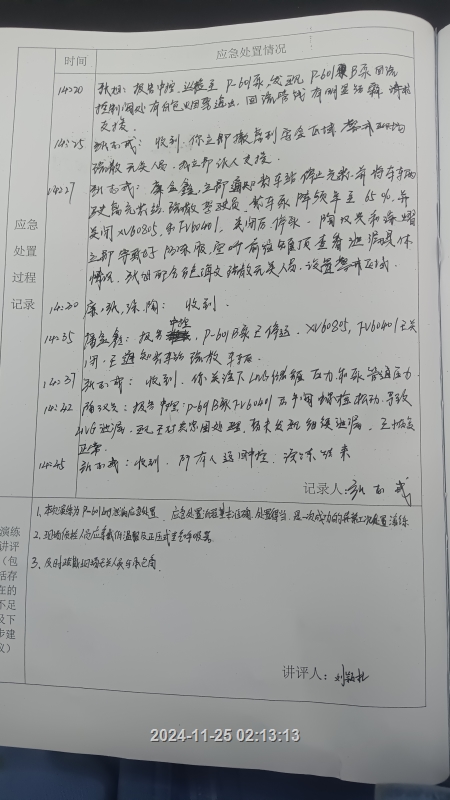 时间
应急处置情况
14:20 张旭：报告中控，巡检至P-601泵，发现P-601B泵回流
控制阀处有白色烟雾逸出，回流管线有明显结霜，请求
支援。
14:25 张志武：收到，你立即撤离到安全区域，警戒现场
疏散无关人员，我立即派人支援。
14:27 张志武：立即通知装车站停止充装，并将车辆
驶离充装站，疏散驾驶员，装车泵降频率至65%，并
关闭XV60805，和FV60401，关闭后停泵，
立即穿戴好防冻服，空呼前往罐顶查看泄漏具体
情况，疏散无关人员，设置警戒区域。
14:30 收到。
14:35 报告中控，P-601B泵已停运，XV60805，FV60401已关
闭，已通知装车站疏散车辆。
14:37 张志武：收到，你关注下LNG储罐压力和泵管道压力
14:42 报告中控：P-601B泵FV60401后手阀螺栓松动导致
LNG泄漏，现已对其紧固处理，暂未发现继续泄漏，已恢复
正常。
14:45 张志武：收到，所有人返回中控，演练结束
记录人：张志武
应急
处置
过程
记录
演练
讲评
（包
括存
在的
不足
及下
步建
议）
1、本次演练为P-601B泵泄漏应急处置，应急处置流程基本正确，处置得当，是一次成功的演练。
2、现场救援人员应穿戴低温服及正压式空气呼吸器。
3、及时疏散现场无关人员与承包商。
讲评人：
2024-11-25 02:13:13